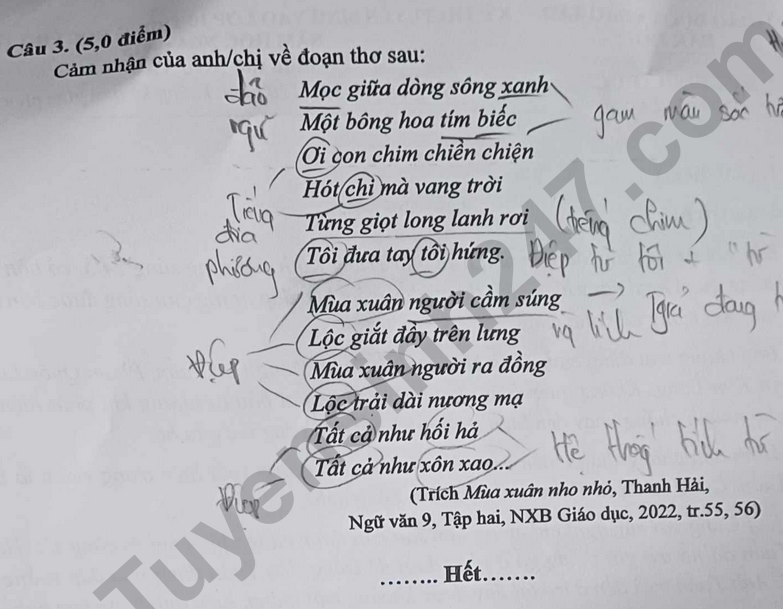 Câu 3. (5,0 điểm)
Cảm nhận của anh/chị về đoạn thơ sau:
đảo ngữ
Mọc giữa dòng sông xanh
Một bông hoa tím biếc
gam màu sắc
Ơi con chim chiền chiện
Hót chi mà vang trời
Tiếng địa phương
Từng giọt long lanh rơi (tiếng chim)
Tôi đưa tay tôi hứng. Điệp từ tôi
Mùa xuân người cầm súng
Lộc giắt đầy trên lưng
giả đang
Điệp
Mùa xuân người ra đồng
Lộc trải dài nương mạ
Tất cả như hối hả
Tất cả như xôn xao...
Hệ thống
Điệp
(Trích Mùa xuân nho nhỏ, Thanh Hải,
Ngữ văn 9, Tập hai, NXB Giáo dục, 2022, tr.55, 56)
........ Hết.......
Tuyensinh247.com